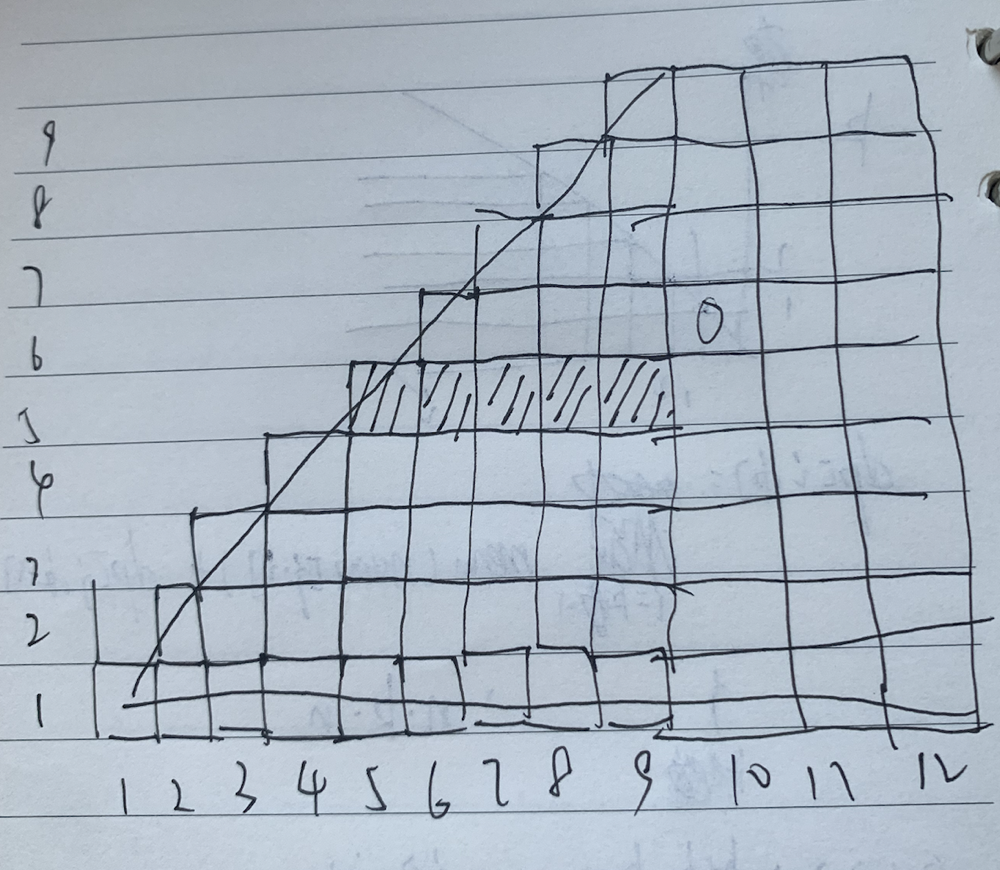 9
8
7
6
5
4
3
2
1
0
1 2 3 4 5 6 7 8 9 10 11 12